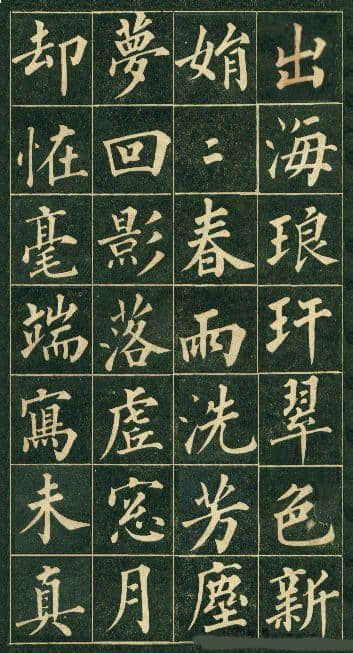 出海琅玕翠色新
娟二春雨洗芳塵
夢回影落虛窓月
却恠毫端寫未真